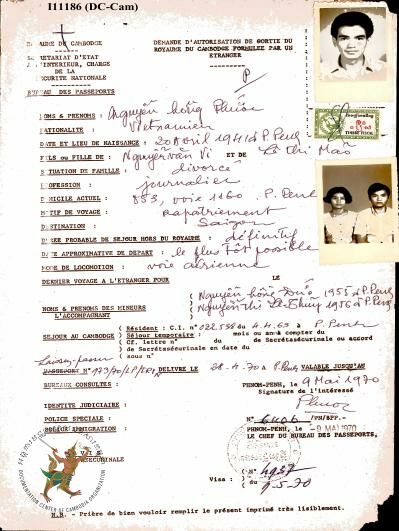 I11186 (DC-Cam)
ROYAUME DU CAMBODGE
SECRETARIAT D'ETAT
A L'INTERIEUR, CHARGE
DE LA
SECURITE NATIONALE
BUREAU DES PASSEPORTS
DEMANDE D'AUTORISATION DE SORTIE DU
ROYAUME DU CAMBODGE FORMULEE PAR UN
ETRANGER
P
NOMS & PRENOMS : Nguyễn hồng Phước
NATIONALITE : Vietnamien
DATE ET LIEU DE NAISSANCE : 20 Avril 1941 à P. Penh
FILS ou FILLE DE : Nguyễn văn Vi ET DE Lê thi Mão
SITUATION DE FAMILLE : divorcé
PROFESSION : journalier
DOMICILE ACTUEL : 853, voie 1160. P. Penh
MOTIF DE VOYAGE : rapatriement
DESTINATION : Saigon
DUREE PROBABLE DE SEJOUR HORS DU ROYAUME : définitif
DATE APPROXIMATIVE DE DEPART : le plus tôt possible
MODE DE LOCOMOTION : voie aérienne
DERNIER VOYAGE A L'ETRANGER POUR LE
NOMS & PRENOMS DES MINEURS
L'ACCOMPAGNANT
Nguyễn hồng 1955 à P. Penh
Nguyễn thi 1956 à P. Penh
SEJOUR AU CAMBODGE
Résident : C.I. n° 022538 du 4.4.63 à P. Penh
Séjour temporaire : mois ou an à compter du
Cf. lettre n° du de Secrétasécurinale ou accord
de Secrétasécurinale en date du
sous n°
Laissez-passer
PASSEPORT N° DELIVRE LE 28-4-70 à P. Penh VALABLE JUSQU'AU
BUREAUX CONSULTES :
PHNOM-PENH, le 9 Mai 1970
Signature de l'intéressé
IDENTITE JUDICIAIRE :
POLICE SPECIALE :
POLICE IMMIGRATION :
N° /PN/BPP.
PHNOM-PENH, le -9 MAI 1970
LE CHEF DU BUREAU DES PASSEPORTS,
Visa :
n° 4957
du 9.5.70
DOCUMENTATION CENTER OF CAMBODIA ORGANIZATION
N.B. - Prière de bien vouloir remplir le présent imprimé très lisiblement.